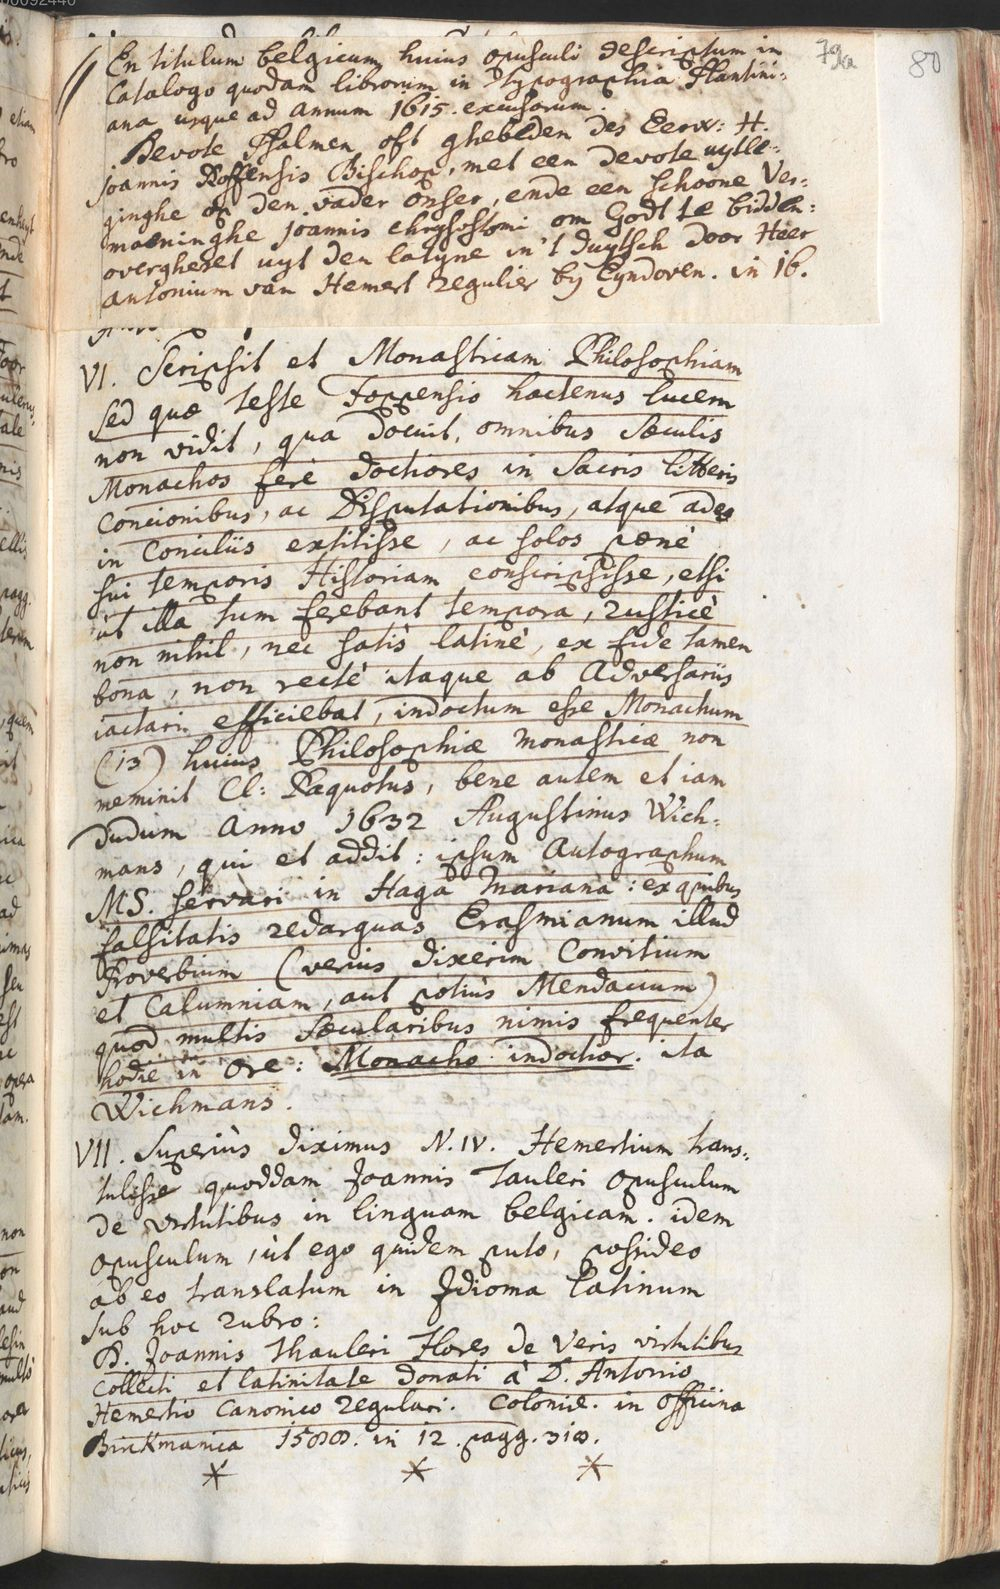 79a
80
// En titulum belgicum huius opusculi descriptum in
Catalogo quodam librorum in Typographia Plantini:
ana usque ad annum 1615. excusorum.
Devote Psalmen oft ghebeden des Eerw: H.
Joannis Roffensis Bischop, met een devote uytle:
ginghe op den vader onser, ende een schoone Ver:
maeninghe Joannis chrysostomi om Godt te bidden:
overgheset uyt den latyne in 't duytsch door Heer
antonium van Hemert regulier by Eyndoven. in 16.
VI. Scripsit et Monasticam Philosophiam
sed quæ teste Foppensio hactenus lucem
non vidit, qua docuit, omnibus sæculis
Monachos ferè doctiores in Sacris litteris
Concionibus, ac Disputationibus, atque adeo
in Conciliis extitisse, ac solos pœnè
sui temporis Historiam conscripsisse, etsi
ut illa tum ferebant tempora, rusticè
non nihil, nec satis latinè, ex fide tamen
bona, non rectè itaque ab Adversariis
iactari efficiebat, indoctum esse Monachum
(13) huius Philosophiæ monasticæ non
meminit Cl: Paquotus, bene autem et iam
dudum Anno 1632 Augustinus Wich:
mans, qui et addit: ipsum Autographum
MS. servari in Haga Mariana: ex quibus
falsitatis redarguas Erasmianum illud
Proverbium (verius dixerim Convitium
et Calumniam, aut potiùs Mendacium)
quod multis Sæcularibus nimis frequenter
hodie in ore: Monacho indoctior. ita
Wichmans.
VII. Superiùs diximus N. IV. Hemertium trans:
tulisse quoddam Joannis Tauleri opusculum
de virtutibus in linguam belgicam. idem
opusculum, ùt ego quidem puto, possideo
ab eo translatum in Idioma Latinum
sub hoc rubro:
D. Joannis Thauleri Flores de Veris virtutibus
collecti et latinitate donati à D. Antonio
Hemertio Canonico regulari. Coloniæ. in officina
Birckmanica 1588. in 12. pagg. 318.
* * *